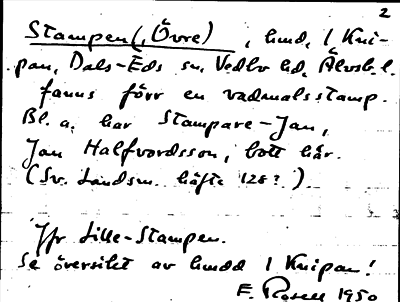 2
Stampen(, Övre), lmd, 1 Kni-
pan, Dals-Eds sn, Vedbo hd, Älvsb. l.
fanns förr en vadmalsstamp.
Bl. a. har Stampare-Jan,
Jan Halfvordsson, bott här.
(Sv. Landsm. häfte 128?)
Jfr Lille-Stampen.
Se översikt av lmdd 1 Knipan!
E. Rosell 1950